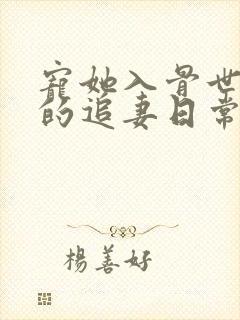 寵她入骨世
的追妻日常
楊善好